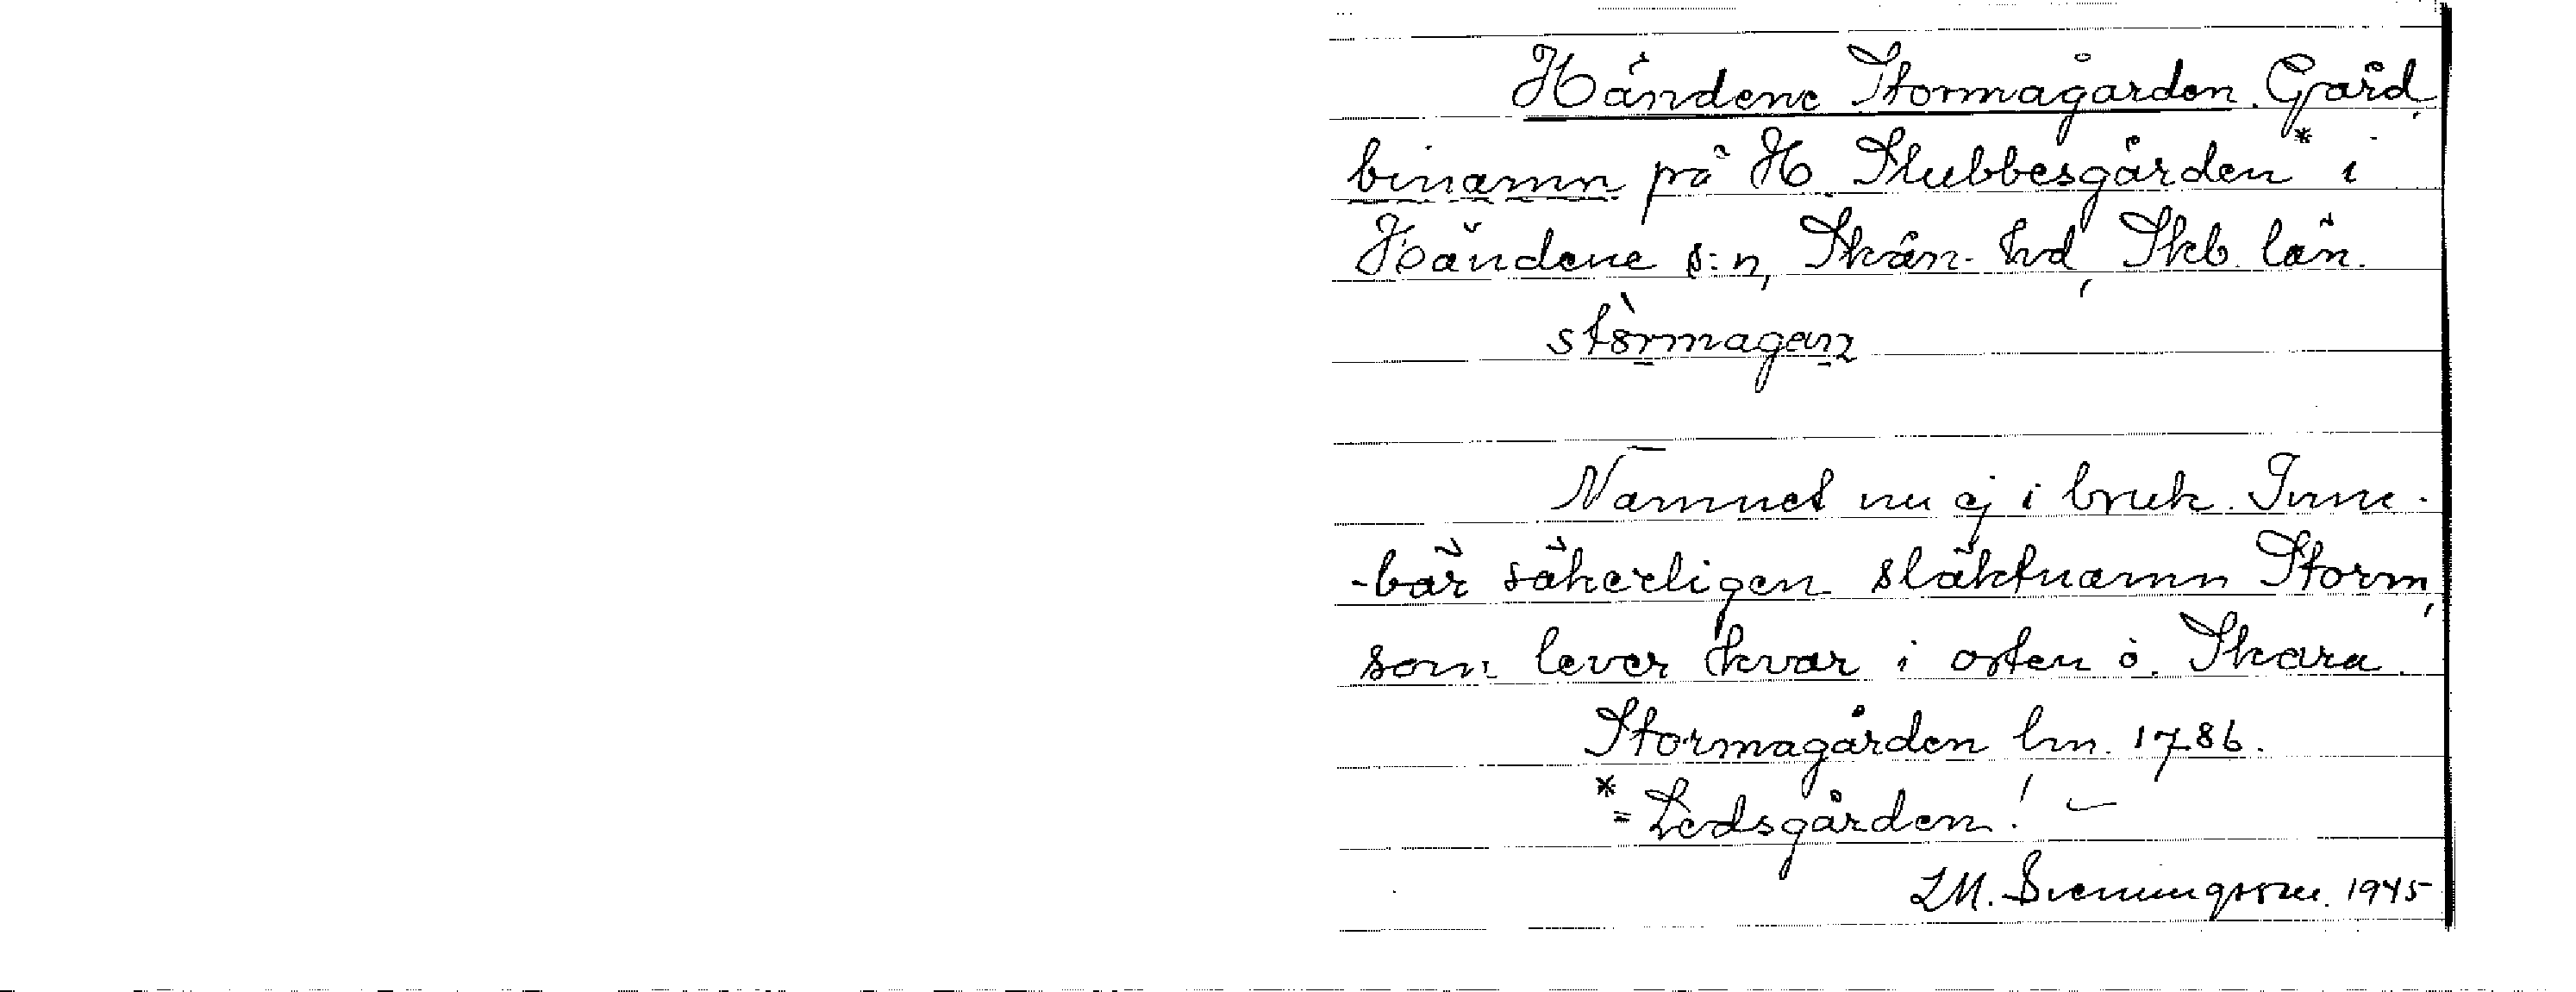 Händene Stormagården. Gård,
binamn på H. Stubbesgården* i
Händene s:n, Skån. hd, Skb. län.
stòrmagan
Namnet nu ej i bruk. Inne-
-bär säkerligen släktnamn Storm,
som lever kvar i orten o. Skara.
Stormagården hm. 1786.
*= Ledsgården! –
LM. Svenungsson. 1945